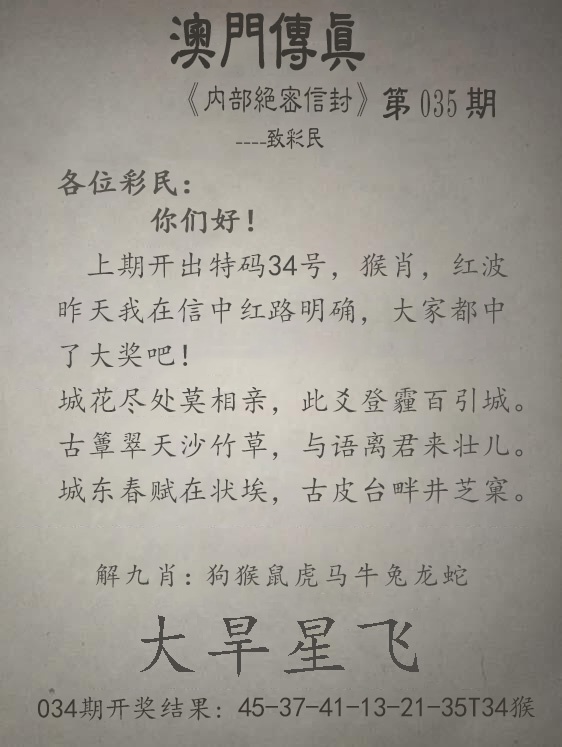 澳門傳眞
《内部絕密信封》第035期
----致彩民
各位彩民：
你们好！
上期开出特码34号，猴肖，红波
昨天我在信中红路明确，大家都中
了大奖吧！
城花尽处莫相亲，此爻登霾百引城。
古簟翠天沙竹草，与语离君来壮儿。
城东春赋在状埃，古皮台畔井芝窠。
解九肖：狗猴鼠虎马牛兔龙蛇
大旱星飞
034期开奖结果：45-37-41-13-21-35T34猴